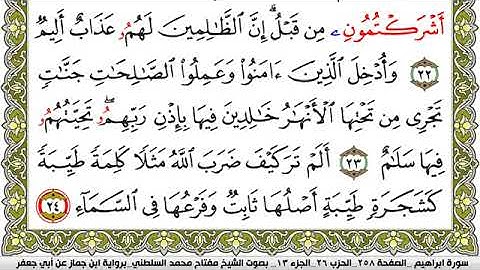 أَشْرَكْتُمُونِۦ مِن قَبْلُ ۗ إِنَّ ٱلظَّـٰلِمِينَ لَهُمُۥ عَذَابٌ أَلِيمٌ
٢٢ وَأُدْخِلَ ٱلَّذِينَ ءَامَنُوا۟ وَعَمِلُوا۟ ٱلصَّـٰلِحَـٰتِ جَنَّـٰتٍ
تَجْرِى مِن تَحْتِهَا ٱلْأَنْهَـٰرُ خَـٰلِدِينَ فِيهَا بِإِذْنِ رَبِّهِمُۥ ۖ تَحِيَّتُهُمُۥ
فِيهَا سَلَـٰمٌ ٢٣ أَلَمْ تَرَ كَيْفَ ضَرَبَ ٱللَّهُ مَثَلًا كَلِمَةً طَيِّبَةً
كَشَجَرَةٍ طَيِّبَةٍ أَصْلُهَا ثَابِتٌ وَفَرْعُهَا فِى ٱلسَّمَآءِ ٢٤
سورة ابراهيم _الصفحة ٢٥٨_ الحزب ٢٦_ الجزء ١٣_ بصوت الشيخ مفتاح محمد السلطني_برواية ابن جماز عن أبي جعفر